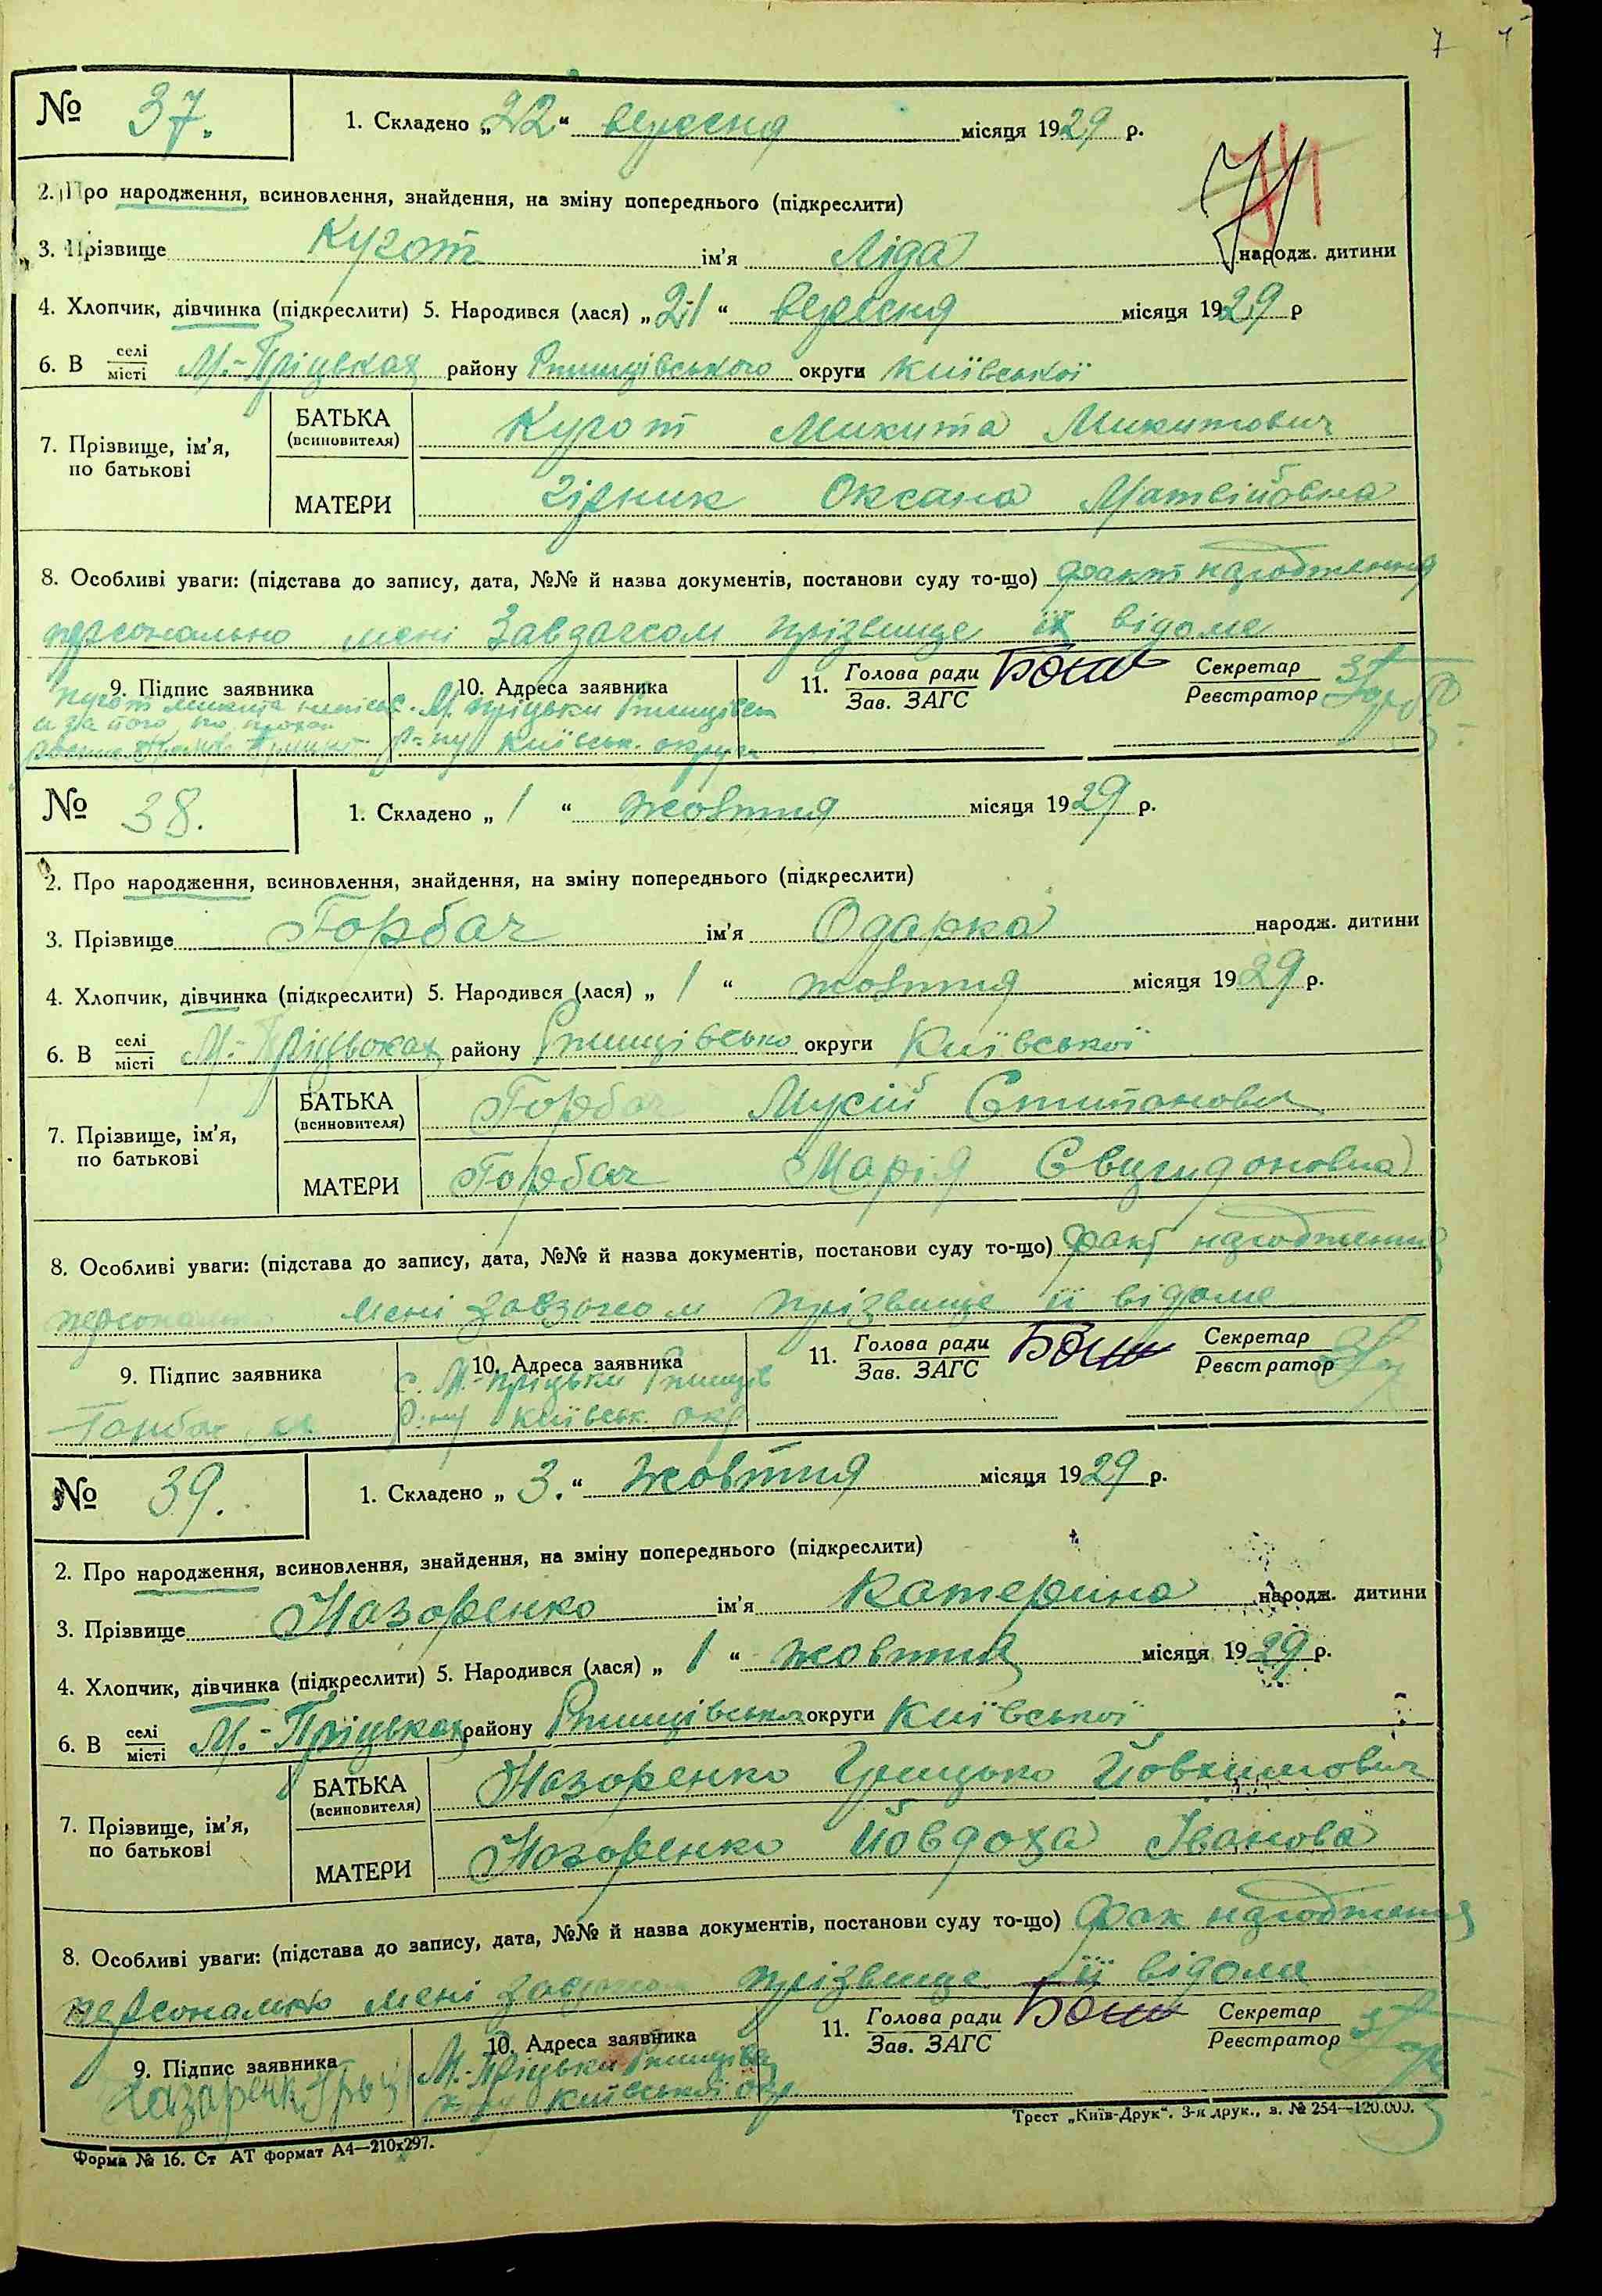 7
№ 37. 1. Складено „22“ вересня місяця 1929 р.
74
2. Про народження, всиновлення, знайдення, на зміну попереднього (підкреслити)
3. Прізвище Кугот ім'я Ліда народж. дитини
4. Хлопчик, дівчинка (підкреслити) 5. Народився (лася) „21“ вересня місяця 1929 р
6. В селі/місті М.-Пріцьках району Ржищівського округи Київської
7. Прізвище, ім'я, по батькові
БАТЬКА (всиновителя) Кугот Микита Микитович
МАТЕРИ Гірник Оксана Матвійовна
8. Особливі уваги: (підстава до запису, дата, №№ й назва документів, постанови суду то-що) факт народження
персонально мені Завзагсом прізвище їх відоме
9. Підпис заявника 10. Адреса заявника 11. Голова ради/Зав. ЗАГС Секретар/Реєстратор
с. М. Пріцьки Ржищівськ
р-ну Київськ. округи
№ 38. 1. Складено „1“ жовтня місяця 1929 р.
2. Про народження, всиновлення, знайдення, на зміну попереднього (підкреслити)
3. Прізвище Горбач ім'я Одарка народж. дитини
4. Хлопчик, дівчинка (підкреслити) 5. Народився (лася) „1“ жовтня місяця 1929 р.
6. В селі/місті М.-Пріцьках району Ржищівсько округи Київської
7. Прізвище, ім'я, по батькові
БАТЬКА (всиновителя) Горбач Мусій
МАТЕРИ Горбач Марія
8. Особливі уваги: (підстава до запису, дата, №№ й назва документів, постанови суду то-що) факт народження
персонально мені завзагсом прізвище її відоме
9. Підпис заявника 10. Адреса заявника 11. Голова ради/Зав. ЗАГС Секретар/Реєстратор
с. М.-Пріцьки Ржищів
Горбач р-ну Київськ. окр
№ 39. 1. Складено „3.“ жовтня місяця 1929 р.
2. Про народження, всиновлення, знайдення, на зміну попереднього (підкреслити)
3. Прізвище Назоренко ім'я Катерина народж. дитини
4. Хлопчик, дівчинка (підкреслити) 5. Народився (лася) „1“ жовтня місяця 1929 р.
6. В селі/місті М.-Пріцьках району Ржищівсько округи Київської
7. Прізвище, ім'я, по батькові
БАТЬКА (всиновителя) Назоренко Грицько Йовхимович
МАТЕРИ Назоренко Йовдоха Іванова
8. Особливі уваги: (підстава до запису, дата, №№ й назва документів, постанови суду то-що) фак народження
персонально мені прізвище її відоме
9. Підпис заявника 10. Адреса заявника 11. Голова ради/Зав. ЗАГС Секретар/Реєстратор
М.-Пріцьки Ржищівс
р-ну Київської окр
Форма № 16. Ст АТ формат А4—210х297.
Трест „Київ-Друк“. 3-я друк., з. № 254—120.000.